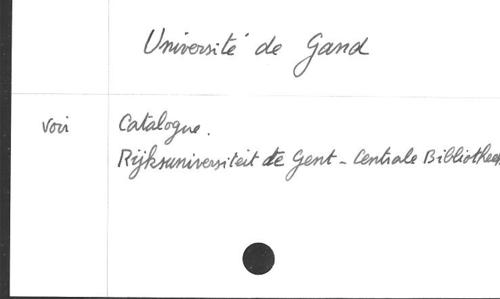 Université de Gand
voir Catalogue.
Rijksuniversiteit te Gent - Centrale Bibliotheek